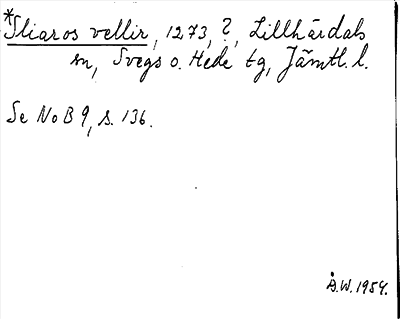 *Sliaros vellir, 1273, ?, Lillhärdals
sn, Svegs o. Hede tg, Jämtl. l.
Se NoB 9, s. 136.
Å.W. 1954.